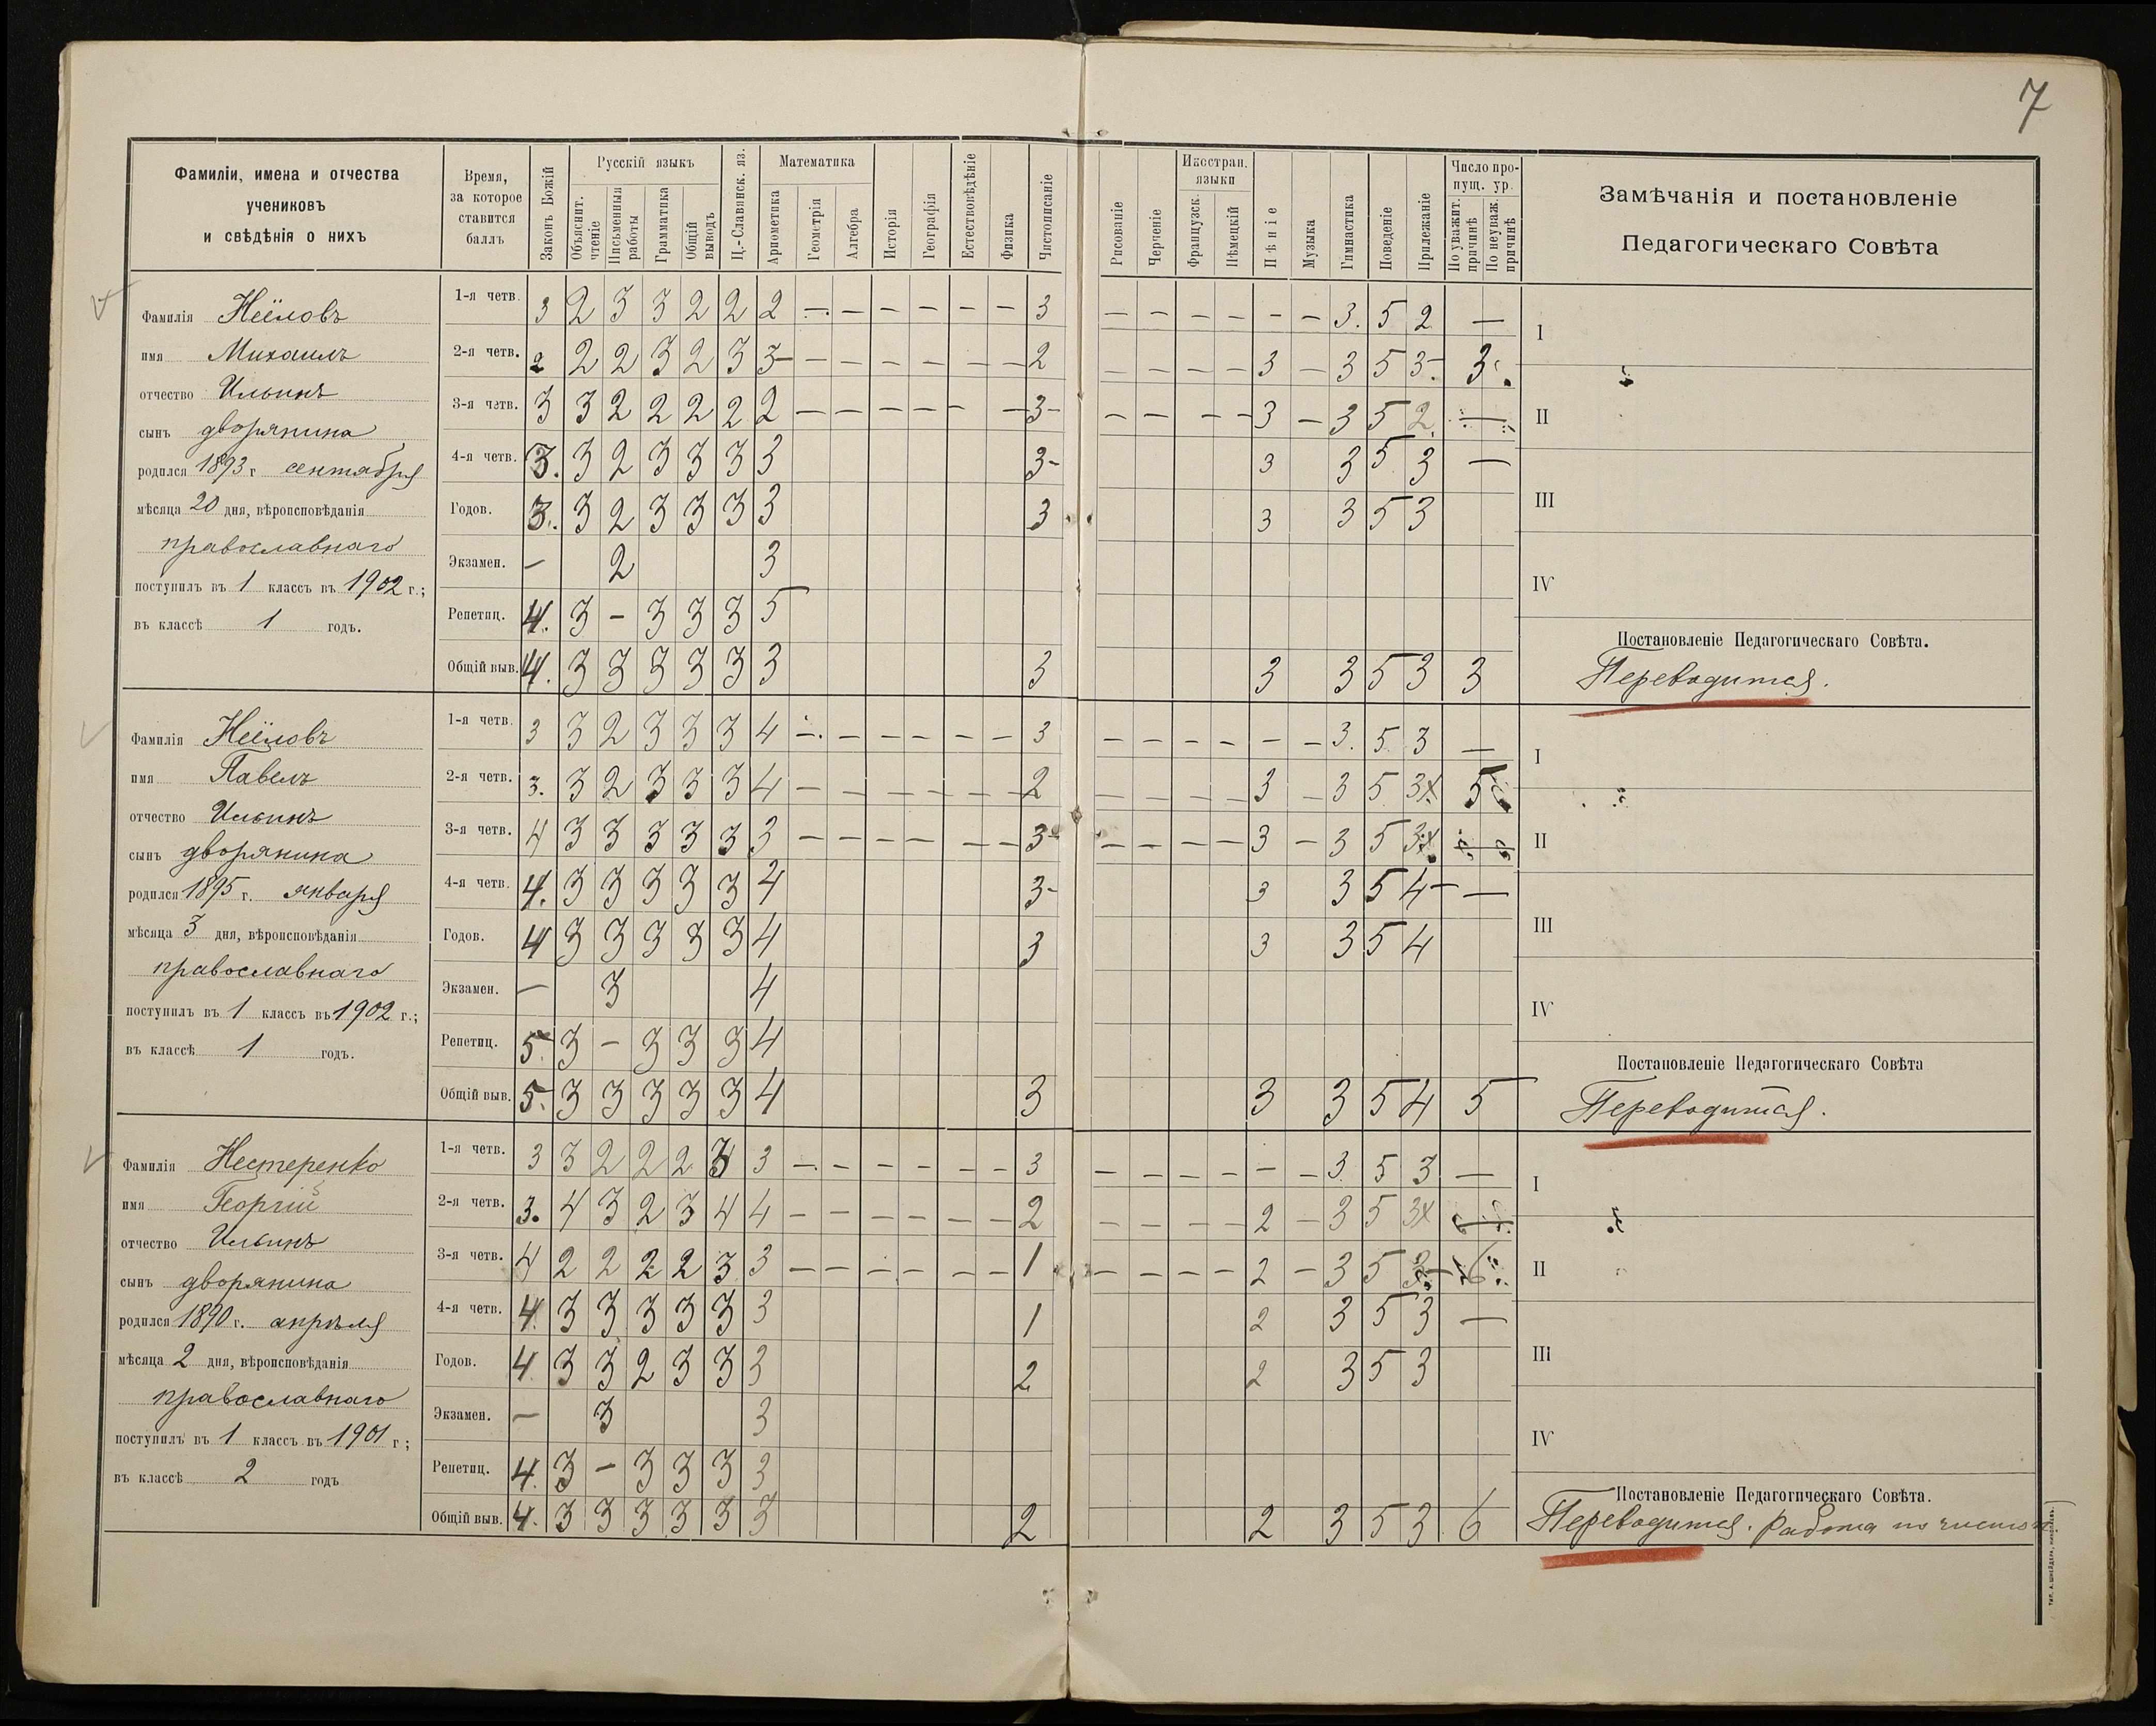 7
Фамиліи, имена и отчества
учениковъ
и свѣдѣнія о нихъ
Время,
за которое
ставится
баллъ
Законъ Божій
Русскій языкъ
Объяснит. чтеніе
Письменныя работы
Грамматика
Общій выводъ
Ц.-Славянск. яз.
Математика
Ариѳметика
Геометрія
Алгебра
Исторія
Географія
Естествовѣдѣніе
Физика
Чистописаніе
Рисованіе
Черченіе
Иностран. языки
Французск.
Нѣмецкій
Пѣніе
Музыка
Гимнастика
Поведеніе
Прилежаніе
Число пропущ. ур.
По уважит. причинѣ
По неуваж. причинѣ
Замѣчанія и постановленіе
Педагогическаго Совѣта
Фамилія Неёловъ
имя Михаилъ
отчество Ильинъ
сынъ дворянина
родился 1893 г сентября
мѣсяца 20 дня, вѣроисповѣданія
православнаго
поступилъ въ 1 классъ въ 1902 г.;
въ классѣ 1 годъ.
1-я четв. 3 2 3 3 2 2 2 — — — — — — 3 — — — — — — 3. 5 2 —
2-я четв. 2 2 2 3 2 3 3- — — — — — — 2 — — — — 3 — 3 5 3- 3
3-я четв. 3 3 2 2 2 2 2 — — — — — — 3- — — — — 3 — 3 5 2 —
4-я четв. 3. 3 2 3 3 3 3 3- 3 3 5 3 —
Годов. 3. 3 2 3 3 3 3 3 3 3 5 3
Экзамен. — 2 3
Репетиц. 4. 3 — 3 3 3 5
Общій выв. 4. 3 3 3 3 3 3 3 3 3 5 3 3
I
II
III
IV
Постановленіе Педагогическаго Совѣта.
Переводится.
Фамилія Неёловъ
имя Павелъ
отчество Ильинъ
сынъ дворянина
родился 1895 г. января
мѣсяца 3 дня, вѣроисповѣданія
православнаго
поступилъ въ 1 классъ въ 1902 г.;
въ классѣ 1 годъ.
1-я четв. 3 3 2 3 3 3 4 — — — — — — 3 — — — — — — 3. 5 3 —
2-я четв. 3. 3 2 3 3 3 4 — — — — — — 2 — — — — 3 — 3 5 3 5
3-я четв. 4 3 3 3 3 3 3 — — — — — — 3- — — — — 3 — 3 5 3 —
4-я четв. 4. 3 3 3 3 3 4 3- 3 3 5 4- —
Годов. 4 3 3 3 3 3 4 3 3 3 5 4
Экзамен. — 3 4
Репетиц. 5. 3 — 3 3 3 4
Общій выв. 5. 3 3 3 3 3 4 3 3 3 5 4 5
I
II
III
IV
Постановленіе Педагогическаго Совѣта
Переводится.
Фамилія Нестеренко
имя Георгій
отчество Ильинъ
сынъ дворянина
родился 1890 г. апрѣля
мѣсяца 2 дня, вѣроисповѣданія
православнаго
поступилъ въ 1 классъ въ 1901 г;
въ классѣ 2 годъ
1-я четв. 3 3 2 2 2 3 3 — — — — — — 3 — — — — — — 3. 5 3 —
2-я четв. 3. 4 3 2 3 4 4 — — — — — — 2 — — — — 2 — 3 5 3 —
3-я четв. 4 2 2 2 2 3 3 — — — — — — 1 — — — — 2 — 3 5 3- 6
4-я четв. 4. 3 3 3 3 3 3 1 2 3 5 3 —
Годов. 4. 3 3 2 3 3 3 2 2 3 5 3
Экзамен. — 3 3
Репетиц. 4. 3 — 3 3 3 3
Общій выв. 4. 3 3 3 3 3 3 2 2 3 5 3 6
I
II
III
IV
Постановленіе Педагогическаго Совѣта.
Переводится. Работа по чистоп